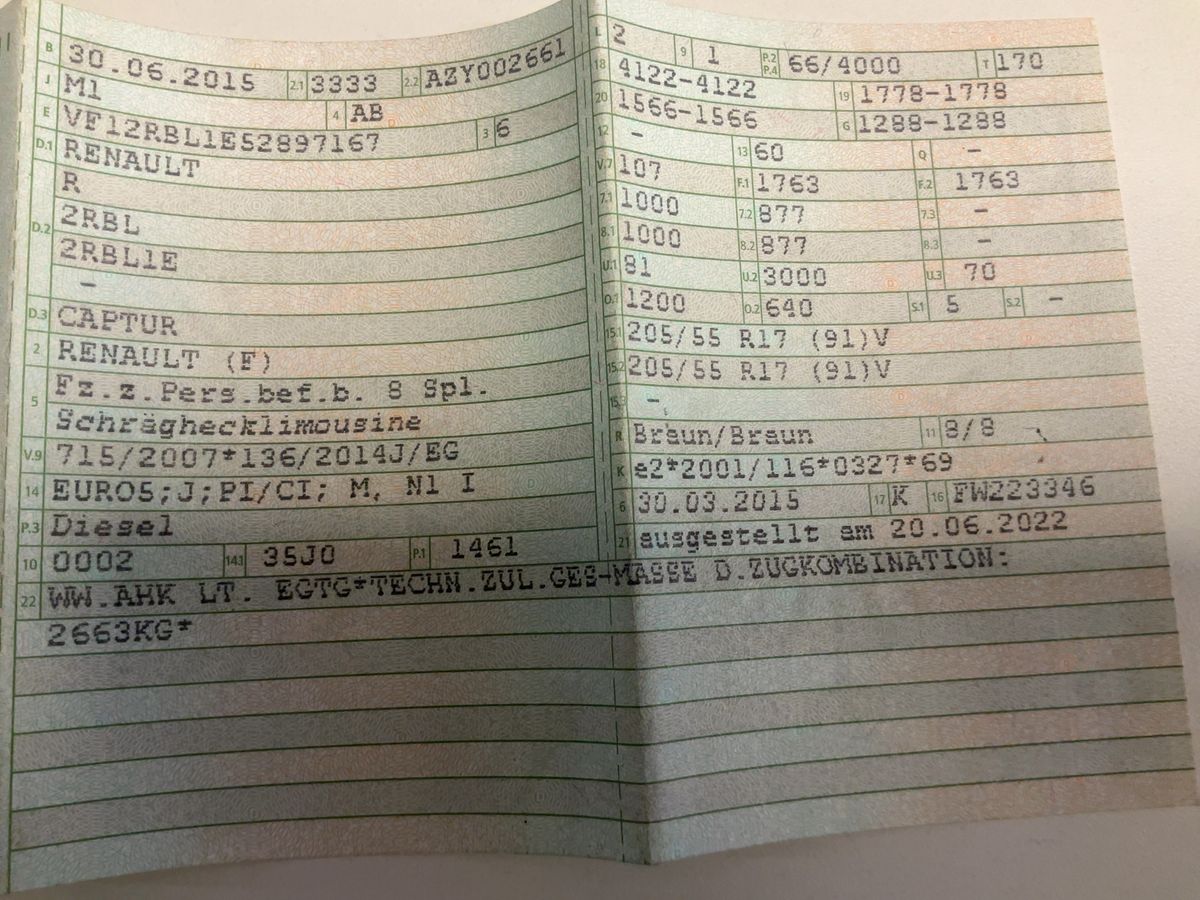 B 30.06.2015 2.1 3333 2.2 AZY002661
J M1 4 AB
E VF12RBL1E52897167 3 6
D.1 RENAULT
R
D.2 2RBL
2RBL1E
-
D.3 CAPTUR
2 RENAULT (F)
5 Fz.z.Pers.bef.b. 8 Spl.
Schräghecklimousine
V.9 715/2007*136/2014J/EG
14 EURO5;J;PI/CI; M, N1 I
P.3 Diesel
10 0002 14.1 35J0 P.1 1461
L 2 9 1 P.2 P.4 66/4000 T 170
18 4122-4122 19 1778-1778
20 1566-1566 G 1288-1288
12 - 13 60 Q -
V.7 107 F.1 1763 F.2 1763
7.1 1000 7.2 877 7.3 -
8.1 1000 8.2 877 8.3 -
U.1 81 U.2 3000 U.3 70
O.1 1200 O.2 640 S.1 5 S.2 -
15.1 205/55 R17 (91)V
15.2 205/55 R17 (91)V
15.3 -
R Braun/Braun 11 8/8
K e2*2001/116*0327*69
6 30.03.2015 17 K 16 FW223346
21 ausgestellt am 20.06.2022
22 WW.AHK LT. EGTG*TECHN.ZUL.GES-MASSE D.ZUGKOMBINATION:
2663KG*